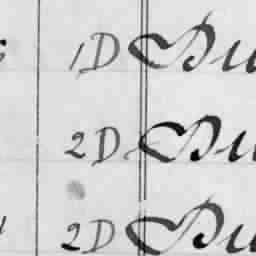 1D Du
2D Du
2D Du